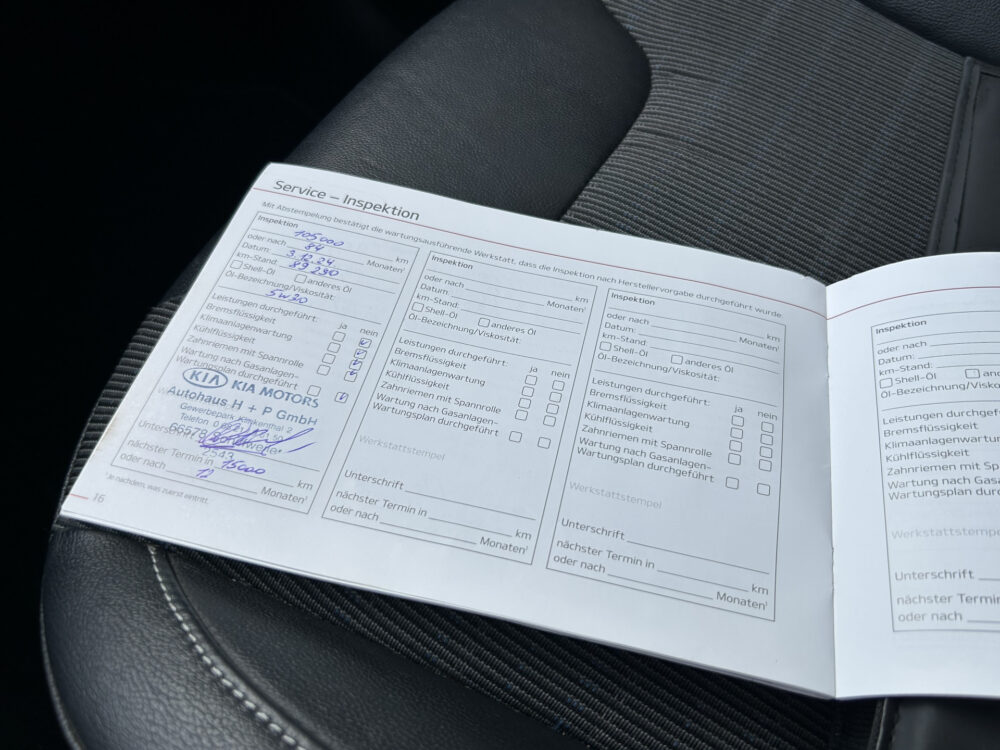 Service – Inspektion
Mit Abstempelung bestätigt die wartungsausführende Werkstatt, dass die Inspektion nach Herstellervorgabe durchgeführt wurde.
Inspektion
105000 km
oder nach 84 Monaten¹
Datum: 3.12.24
km-Stand: 89290
Shell-Öl anderes Öl
Öl-Bezeichnung/Viskosität:
5W20
Leistungen durchgeführt: ja nein
Bremsflüssigkeit
Klimaanlagenwartung
Kühlflüssigkeit
Zahnriemen mit Spannrolle
Wartung nach Gasanlagen-
Wartungsplan durchgeführt
KIA KIA MOTORS
Autohaus H + P GmbH
Gewerbepark
Telefon
66578
Unterschrift
nächster Termin in 15000 km
oder nach 12 Monaten¹
¹Je nachdem, was zuerst eintritt.
16
Inspektion
oder nach km
Datum: Monaten¹
km-Stand:
Shell-Öl anderes Öl
Öl-Bezeichnung/Viskosität:
Leistungen durchgeführt: ja nein
Bremsflüssigkeit
Klimaanlagenwartung
Kühlflüssigkeit
Zahnriemen mit Spannrolle
Wartung nach Gasanlagen-
Wartungsplan durchgeführt
Werkstattstempel
Unterschrift
nächster Termin in km
oder nach Monaten¹
Inspektion
oder nach km
Datum: Monaten¹
km-Stand:
Shell-Öl anderes Öl
Öl-Bezeichnung/Viskosität:
Leistungen durchgeführt: ja nein
Bremsflüssigkeit
Klimaanlagenwartung
Kühlflüssigkeit
Zahnriemen mit Spannrolle
Wartung nach Gasanlagen-
Wartungsplan durchgeführt
Werkstattstempel
Unterschrift
nächster Termin in km
oder nach Monaten¹
Inspektion
oder nach
Datum:
km-Stand:
Shell-Öl and
Öl-Bezeichnung/Visko
Leistungen durchgef
Bremsflüssigkeit
Klimaanlagenwartun
Kühlflüssigkeit
Zahnriemen mit Sp
Wartung nach Gasa
Wartungsplan durc
Werkstattstempe
Unterschrift
nächster Termin
oder nach